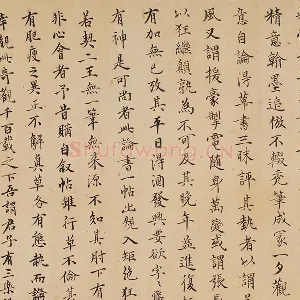 精意翰墨追倣不已禿筆成冢一夕觀
意自論得草書三昧評其執者以謂
風又謂援豪掣電隨身萬變或謂
以狂繼顛孰為不可其晚年益進復
有加無已故其平日得酒發興要欲字
有神是可尚者此論書帖出規入矩絕狂
若契二王無一筆無來源不知其肘下有
非心會者予昔瞻自叙帖雖行草不倫其
有肥瘦之異正不解真草各有態執而論
觀此奇觀千百載之下吾謂君子有三樂